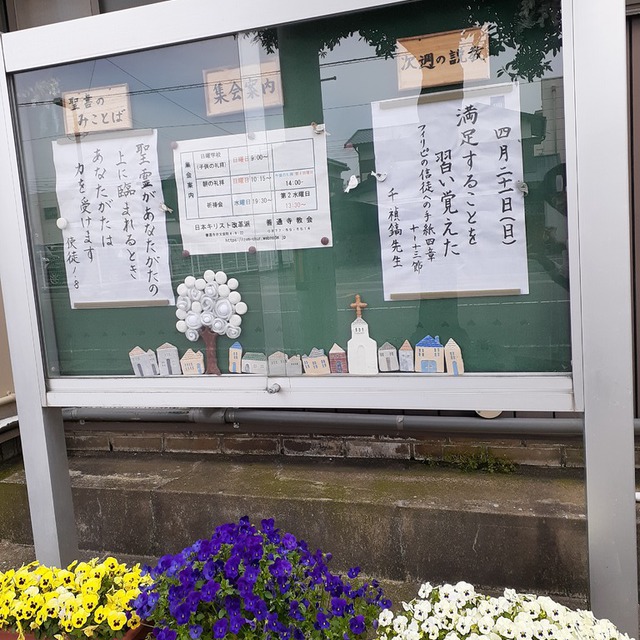 聖書の
みことば
集会案内
次週の説教
聖霊があなたがたの
上に臨まれるとき、
あなたがたは
力を受けます
使徒1:8
集会案内
日曜学校
(子供の礼拝)
日曜日 9:00~
朝の礼拝
日曜日 10:15~
14:00~
祈祷会
水曜日 19:30~
第2水曜日
13:30~
日本キリスト改革派 善通寺教会
四月二十一日(日)
満足することを
習い覚えた
フィリピの信徒への手紙四章
十~十三節